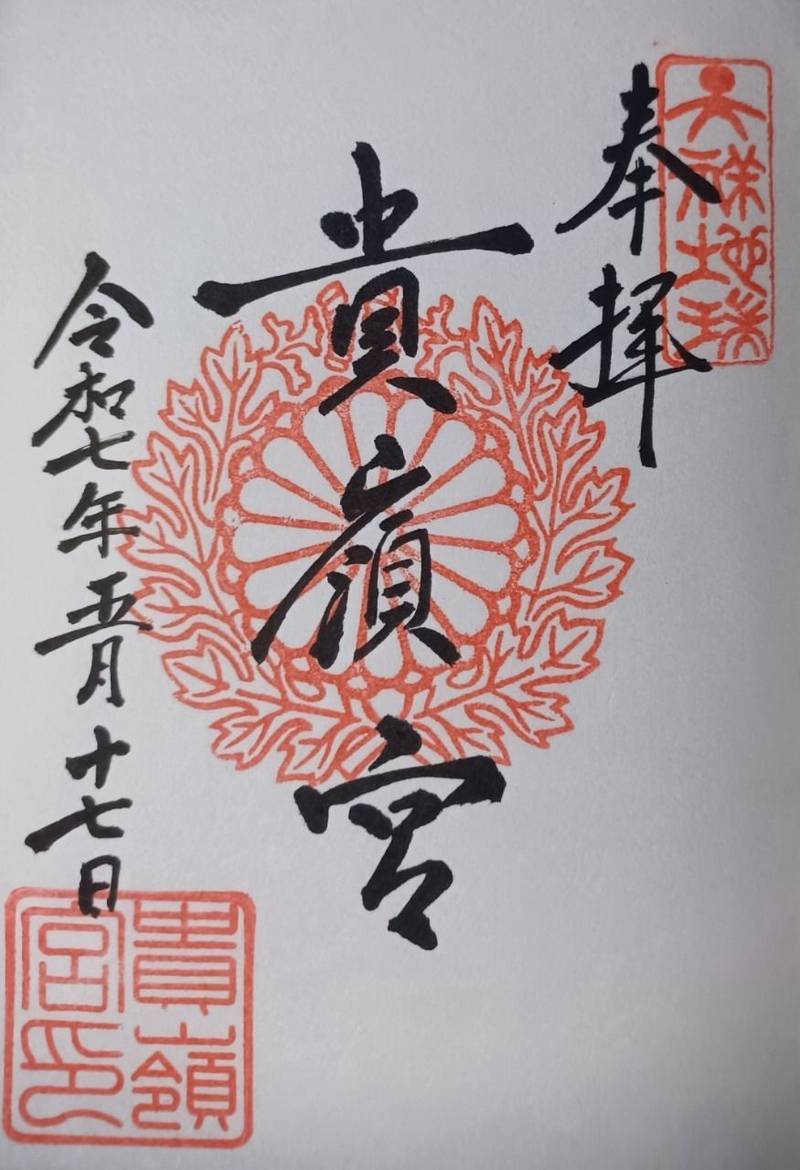 奉拝
天祥地瑞
貴嶺宮
令和七年五月十七日
貴嶺宮印